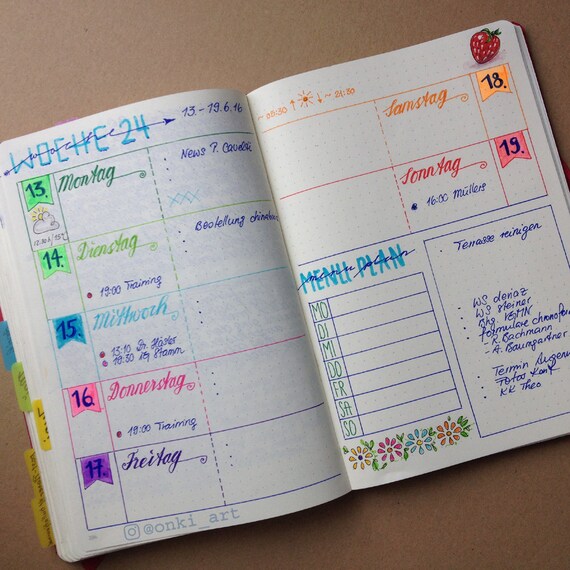 WOCHE 24
13. - 19.6.16
13. Montag
News P.
14. Dienstag
Bestellung
19:00 Training
15. Mittwoch
13:10 Dr. Häsler
Stamm
16. Donnerstag
19:00 Training
17. Freitag
@onki_art
~ 05:30 ↑ ☀ ↓ ~ 21:30
Samstag 18.
Sonntag 19.
16:00 Müllers
MENU PLAN
menu plan
MO
DI
MI
DO
FR
SA
SO
Terrasse reinigen
WS deniaz
WS Steiner
Formulare
- K. Bachmann
- A. Baumgartner
Termin Augen
Fotos
KK Theo